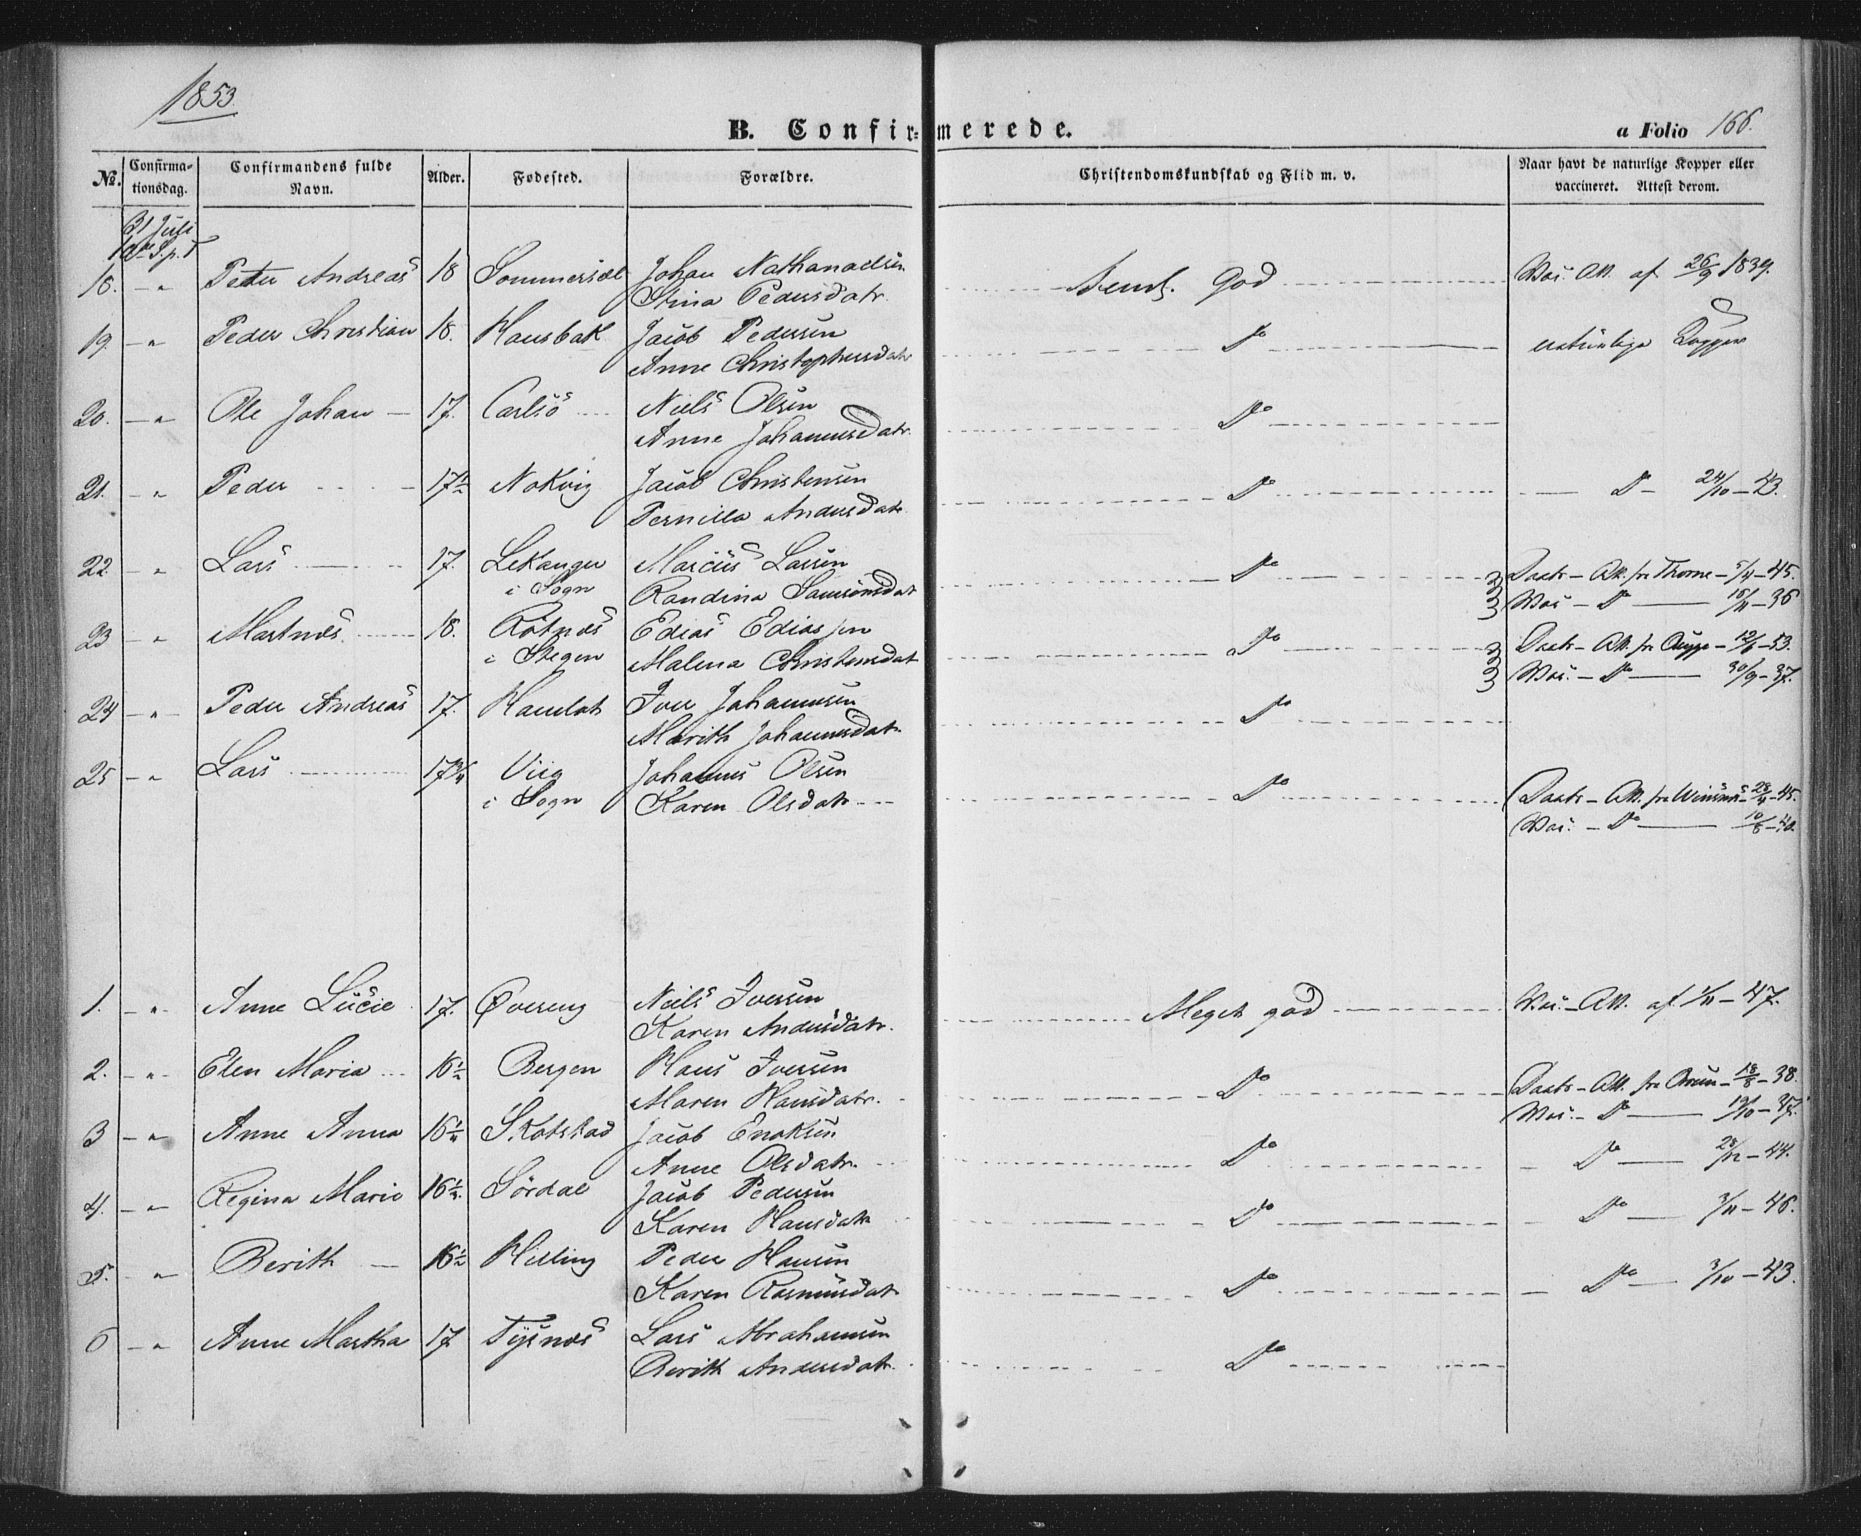 1853
B. Confirmerede.
a Folio 166.
No. Confirmationsdag. Confirmandens fulde Navn. Alder. Fødested. Forældre. Christendomskundskab og Flid m. v. Naar havt de naturlige Kopper eller vaccineret. Attest derom.
31 Juli
10de S. p. T
18. - " Peter Andreas 18 Sommersæl Johan Nathanaelsen Temel. God Vac. Att. af 26/9 1839.
Stina Pedersdatr
19. - " Peder Christian 18. Hansbak Jacob Pedersen Do naturlige Kopper
Anne Christophersdatr
20. - " Ole Johan 17. Carlsö Niels Olsen Do
Anne Johannesdatr.
21. - " Peder 17½ Nokvig Jacob Christensen Do - Do - 24/10 - 43.
Pernilla Andersdatr
22. - " Lars 17. Lekanger Marcus Larsen Do Daabs - Att. fra Thorne - 5/4 - 45.
i Sogn Randina Samsonsdatr Vac - Do - 15/11 - 36
23 - " Martnæs 18. Rötnæs Edias Ediassen Do Daabs - Att. fra - 12/6 - 53.
i Stegen Malena Christensdat Vac. - Do - 30/9 - 37.
24 - " Peder Andreas 17. Hamlot Iver Johannesen Do
Marith Johannesdatr.
25 - " Lars 17¾ Viig Johannes Olsen Do Daabs - Att. fra - 28/4 - 45.
i Sogn Karen Olsdatr Vac. - Do - 10/8 - 40.
1. - " Anne Lucie 17. Øvereng Niels Iversen Meget god Vac. - Att. af 1/11 - 47.
Karen Andersdatr.
2. - " Elen Maria 16½ Bergen Hans Iversen Do Daabs - Att. fra Bruun - 18/8 - 38.
Maren Hansdatr. Vac. - Do - 19/10 - 37.
3 - " Anne Anna 16¼ Skotstad Jacob Enoksen Do - Do - 28/12 - 44.
Anne Olsdatr.
4. - " Regina Marie 16½ Sördal Jacob Pedersen Do Do - 3/11 - 46.
Karen Hansdatr
5. - " Berith 16½ Helling Peder Hansen Do - Do - 3/10 - 43.
Karen Rasmusdatr
6 - " Anne Martha 17 Tysnæs Lars Abrahamsen Do
Berith Andersdatr.